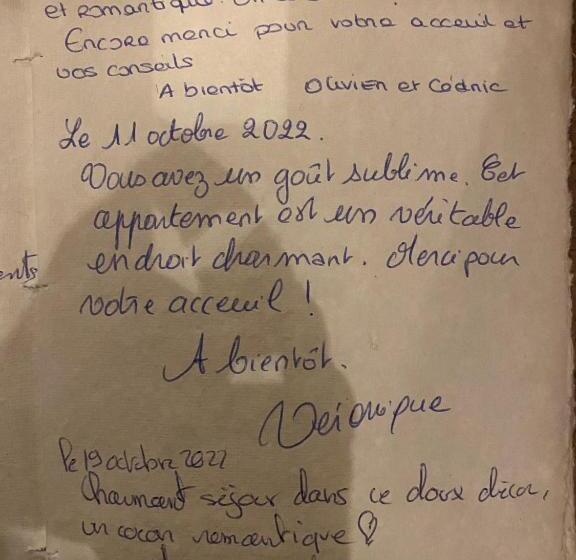 et romantique.
Encore merci pour votre acceuil et
vos conseils
A bientôt Olivier et Cédric
Le 11 octobre 2022.
Vous avez un goût sublime. Cet
appartement est un véritable
ents
endroit charmant. Merci pour
votre acceuil !
A bientôt.
Véronique
le 19 octobre 2022
Charmant séjour dans ce doux décor,
un cocon romantique